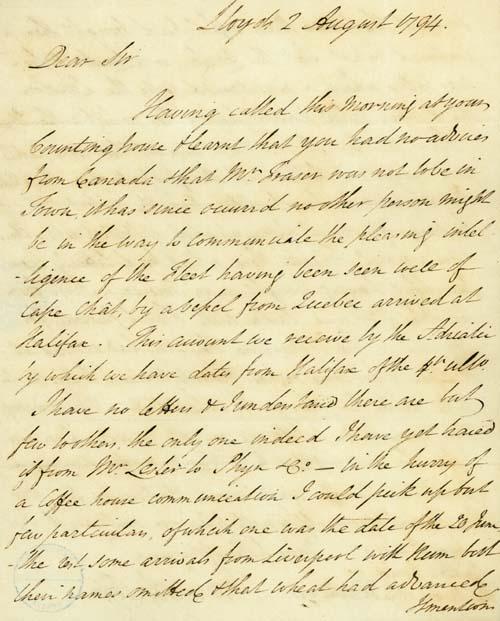 Lloyds 2 August 1794.
Dear Sir
Having called this Morning at your
Counting house & learnt that you had no advices
from Canada & that Mr Fraser was not to be in
Town, it has since occurd no other person might
be in the way to communicate the pleasing intel-
-ligence of the Fleet having been seen well of
Cape Chât, by a vessel from Quebec arrived at
Halifax. This account we receive by the Adriatic
by which we have dates from Halifax of the 4th ulto.
I have no letters & I understand there are but
few to others, the only one indeed I have yet heard
of from Mr to Phyn &Co — in the hurry of
a Coffee house communication I could pick up but
few particulars, of which one was the date of the 20 June
-the some arrivals from Liverpool with Rum but
their names omitted & that wheat had advanced